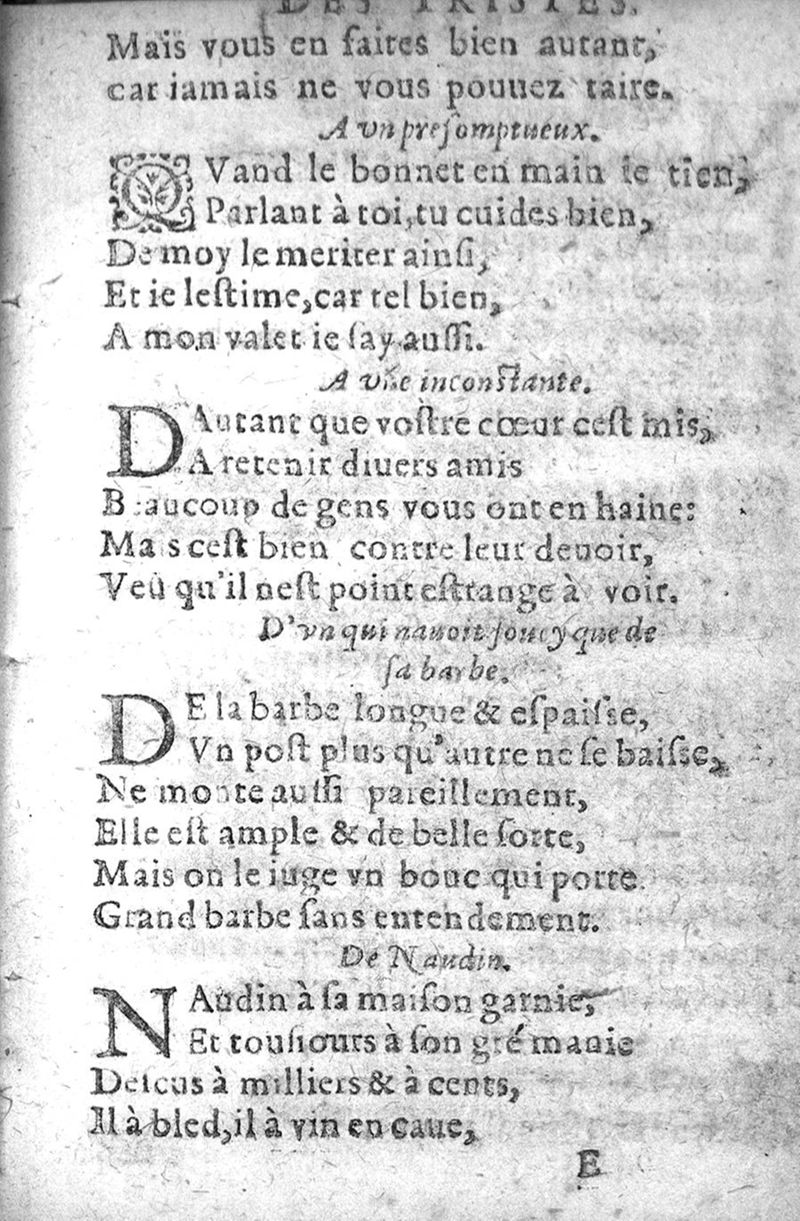 DES TRISTES.
Mais vous en faites bien autant,
car iamais ne vous pouuez taire.
A vn preſomptueux.
QVand le bonnet en main ie tien,
Parlant à toi, tu cuides bien,
De moy le meriter ainſi,
Et ie leſtime, car tel bien,
A mon valet ie ſay auſſi.
A vne inconſtante.
DAutant que voſtre cœur ceſt mis,
A retenir diuers amis
Beaucoup de gens vous ont en haine:
Mais ceſt bien contre leur deuoir,
Veu qu'il neſt point eſtrange à voir.
D'vn qui nauoit ſoucy que de
ſa barbe.
DE la barbe longue & eſpaiſſe,
Vn poſt plus qu'autre ne ſe baiſſe,
Ne monte auſſi pareillement,
Elle eſt ample & de belle ſorte,
Mais on le iuge vn bouc qui porte
Grand barbe ſans entendement.
De Naudin.
NAudin à ſa maiſon garnie,
Et touſiours à ſon gré manie
Deſcus à milliers & à cents,
Il à bled, il à vin en caue,
E